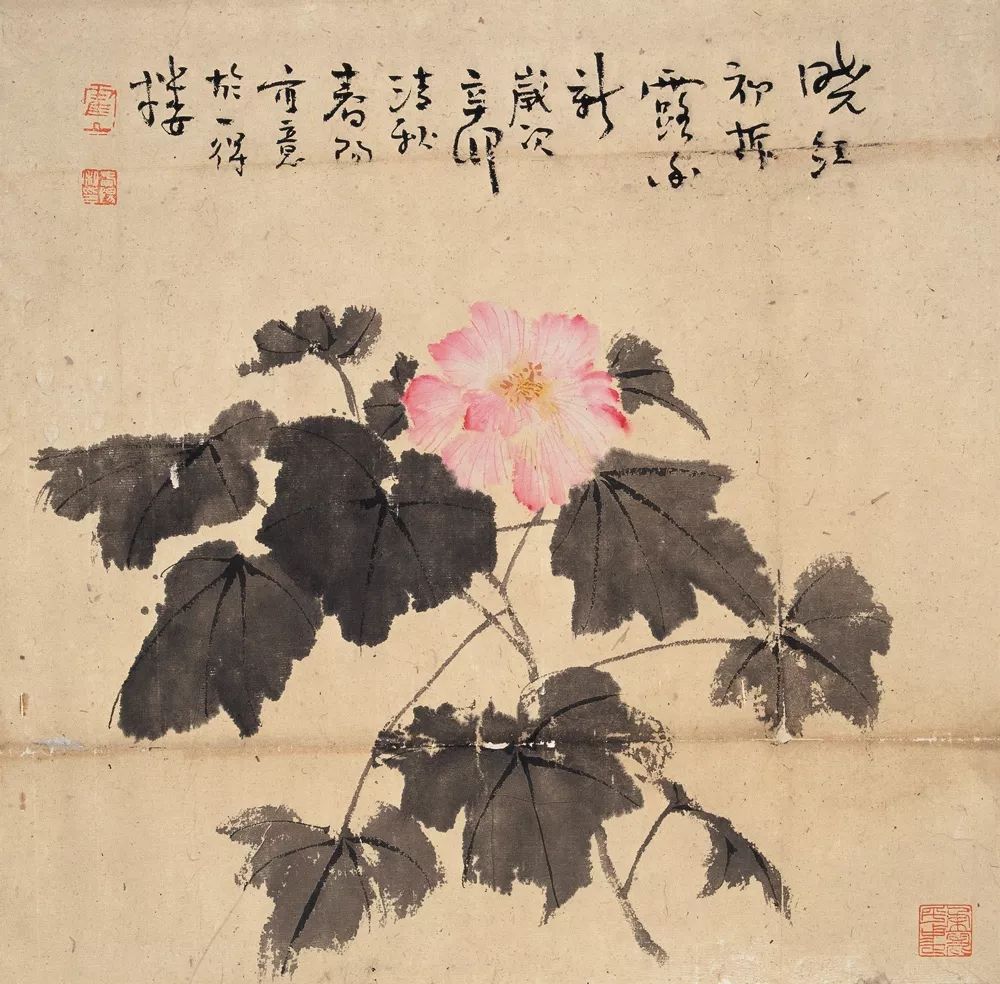 晓红
初拆
露香
新
歲次
辛卯
清秋
春陽
寫意
於一得
樓
霍